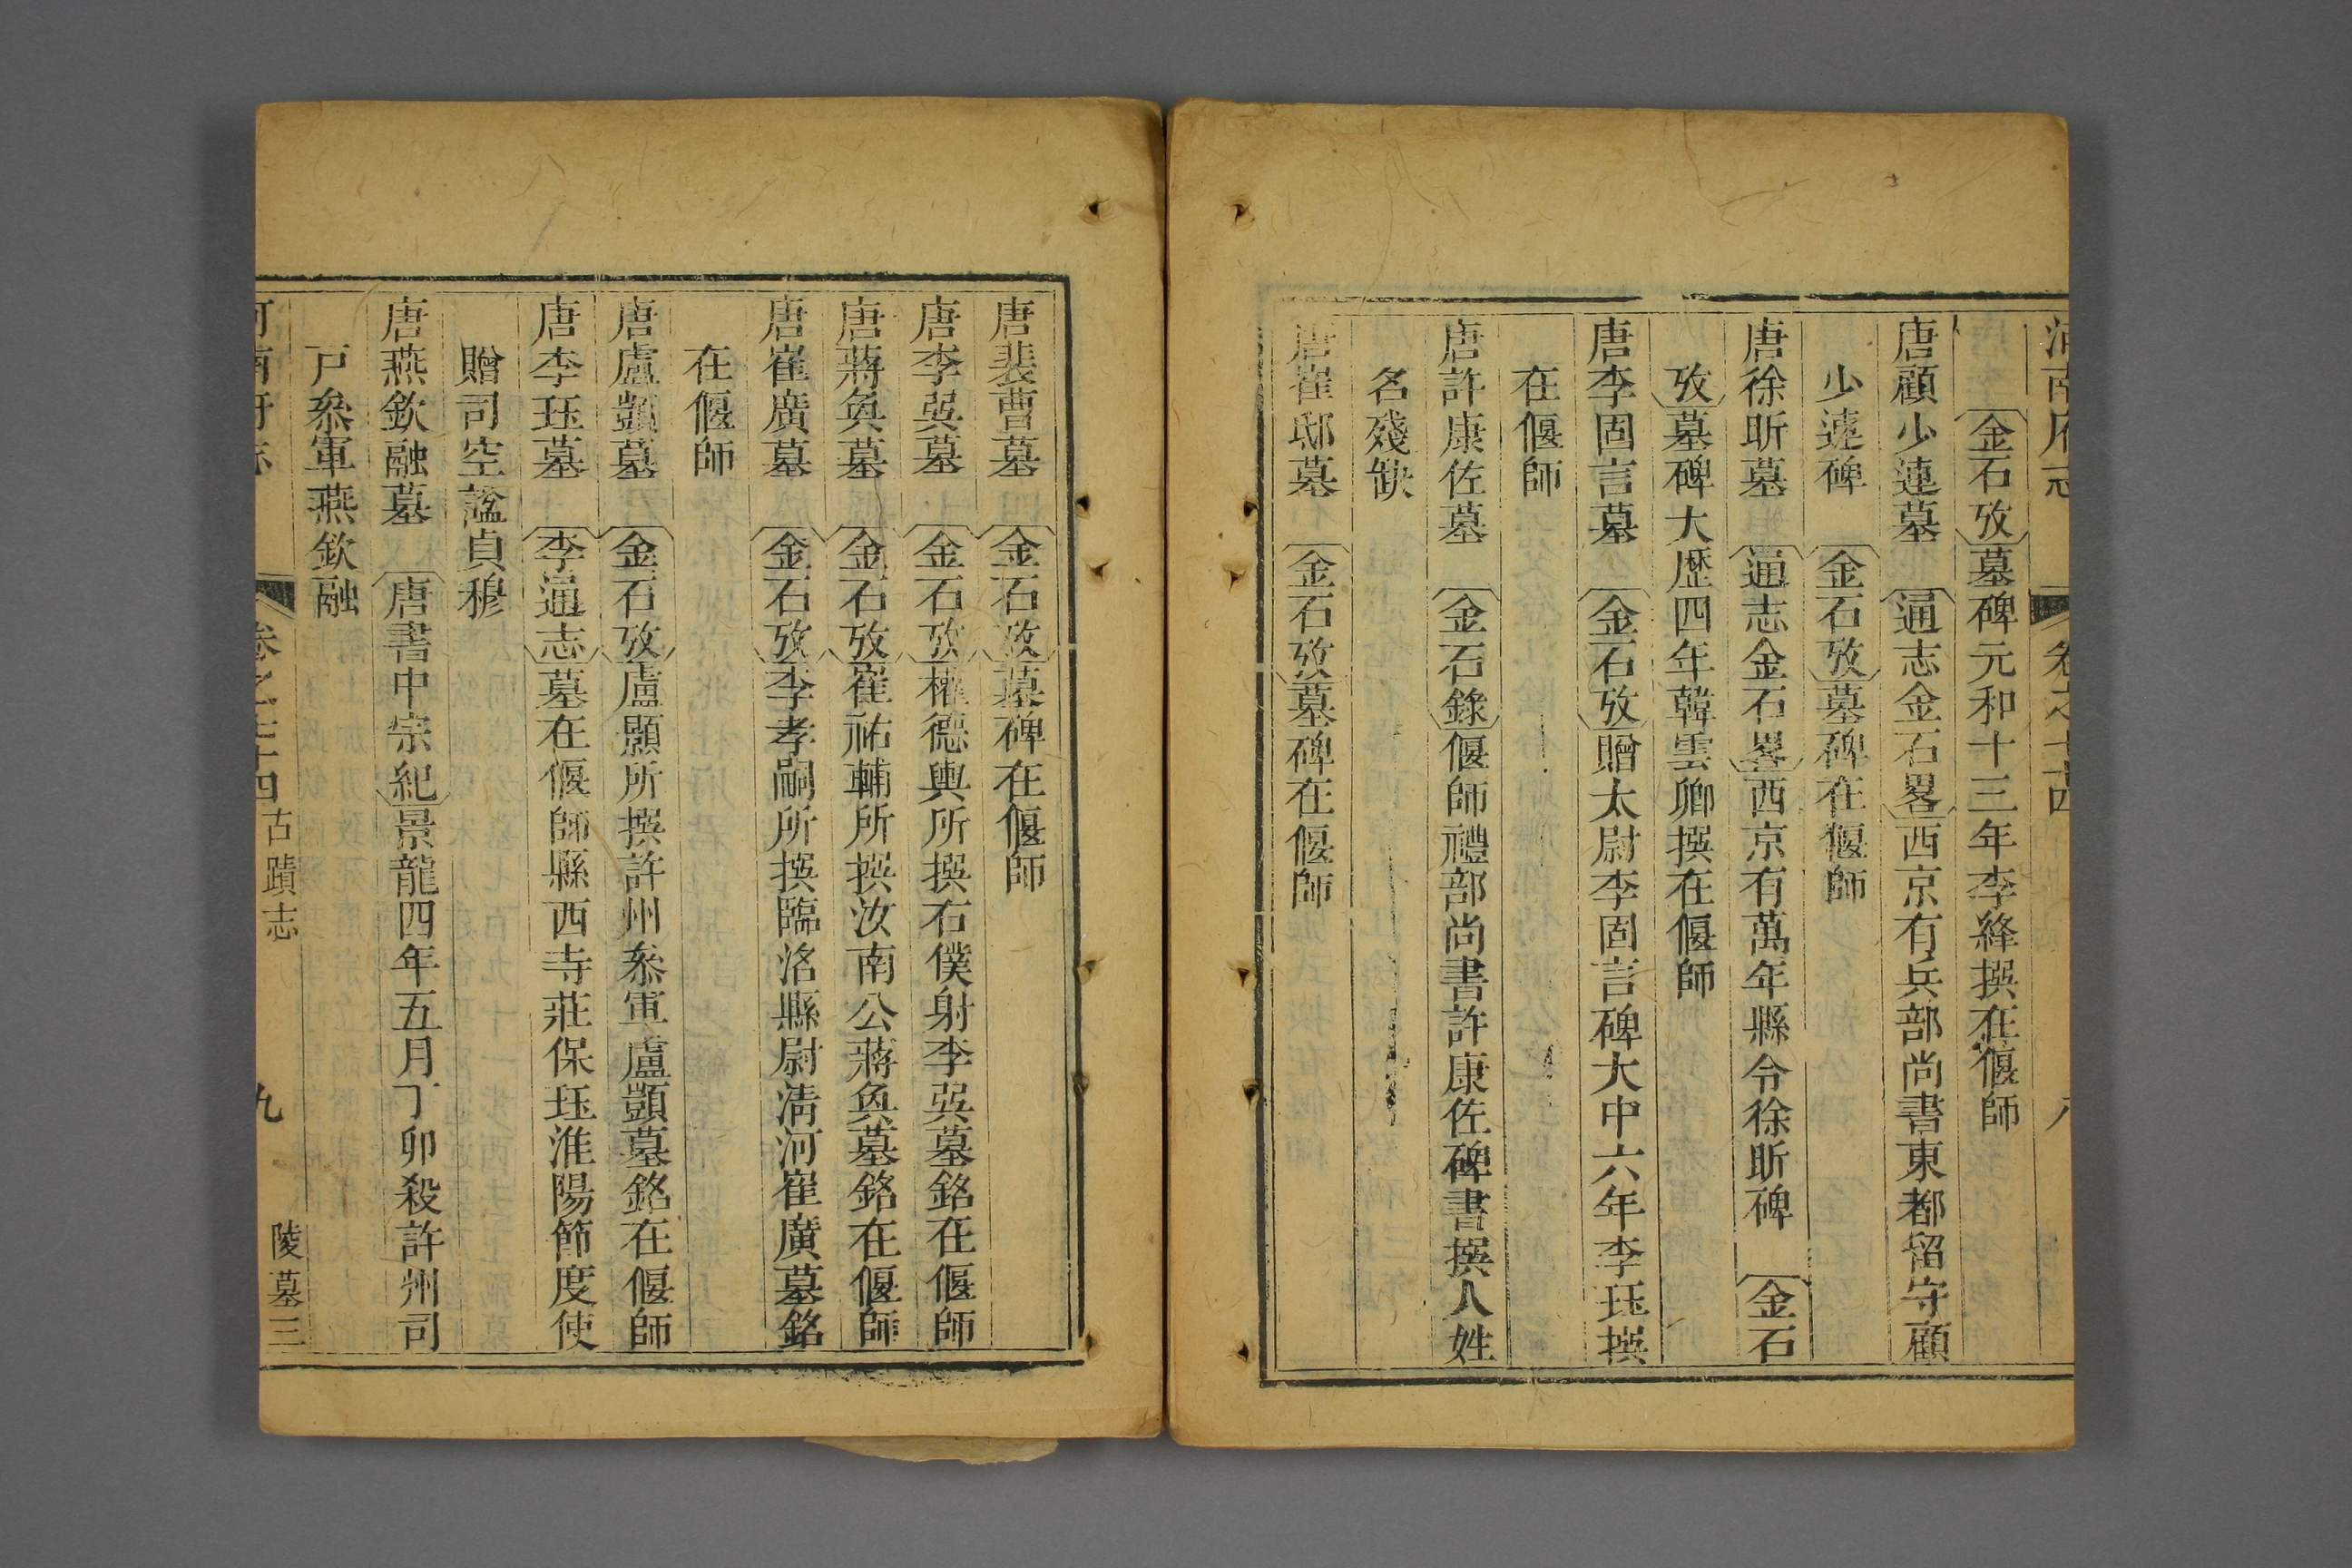 河南府志 卷之七十四 八
金石攷墓碑元和十三年李絳撰在偃師
唐顧少連墓 通志金石畧西京有兵部尚書東都留守顧
少連碑 金石攷墓碑在偃師
唐徐昕墓 通志金石畧西京有萬年縣令徐昕碑 金石
攷墓碑大歷四年韓雲卿撰在偃師
唐李固言墓 金石攷贈太尉李固言碑大中六年李珏撰
在偃師
唐許康佐墓 金石錄偃師禮部尚書許康佐碑書撰人姓
名殘缺
唐崔邸墓 金石攷墓碑在偃師
唐裴曹墓 金石攷墓碑在偃師
唐李巽墓 金石攷權德輿所撰右僕射李巽墓銘在偃師
唐蔣奐墓 金石攷崔祐輔所撰汝南公蔣奐墓銘在偃師
唐崔廣墓 金石攷李孝嗣所撰臨洺縣尉淸河崔廣墓銘
在偃師
唐盧顗墓 金石攷盧顯所撰許州叅軍盧顗墓銘在偃師
唐李珏墓 李通志墓在偃師縣西寺莊保珏淮陽節度使
贈司空諡貞穆
唐燕欽融墓 唐書中宗紀景龍四年五月丁卯殺許州司
戸叅軍燕欽融
河南府志 卷之七十四 古蹟志 九 陵墓三